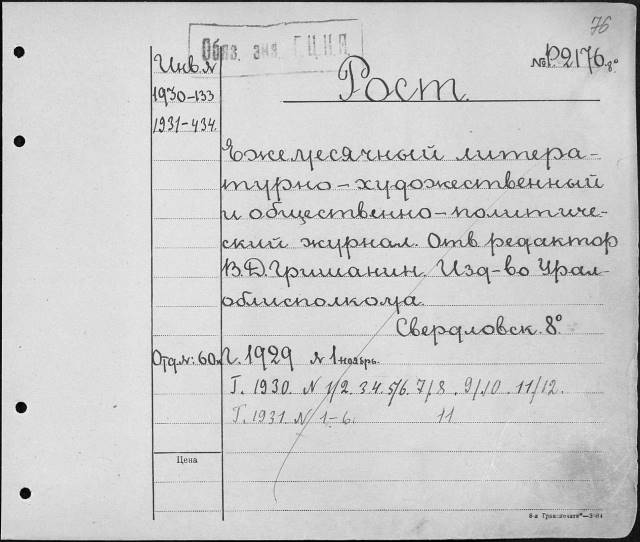 76
Обяз. экз. Г.Ц.К.П.
Инв. №
1930–133
1931–434.
№ Р2176 8°
Рост.
Ежемесячный литера-
турно-художественный
и общественно-политиче-
ский журнал. Отв. редактор
В.Д. Гришанин. Изд-во Урал-
облисполкома.
Свердловск. 8°
Отд. №: 60к. Г. 1929 № 1 ноябрь.
Г. 1930. N 1/2. 3 4. 5/6. 7/8. 9/10. 11/12.
Г. 1931. N 1–6. 11
Цена